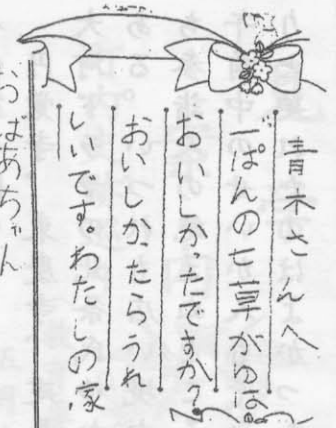 青木さんへ
一ぱんの七草がゆは、
おいしかったですか?
おいしかったらうれ
しいです。わたしの家
おばあちゃん